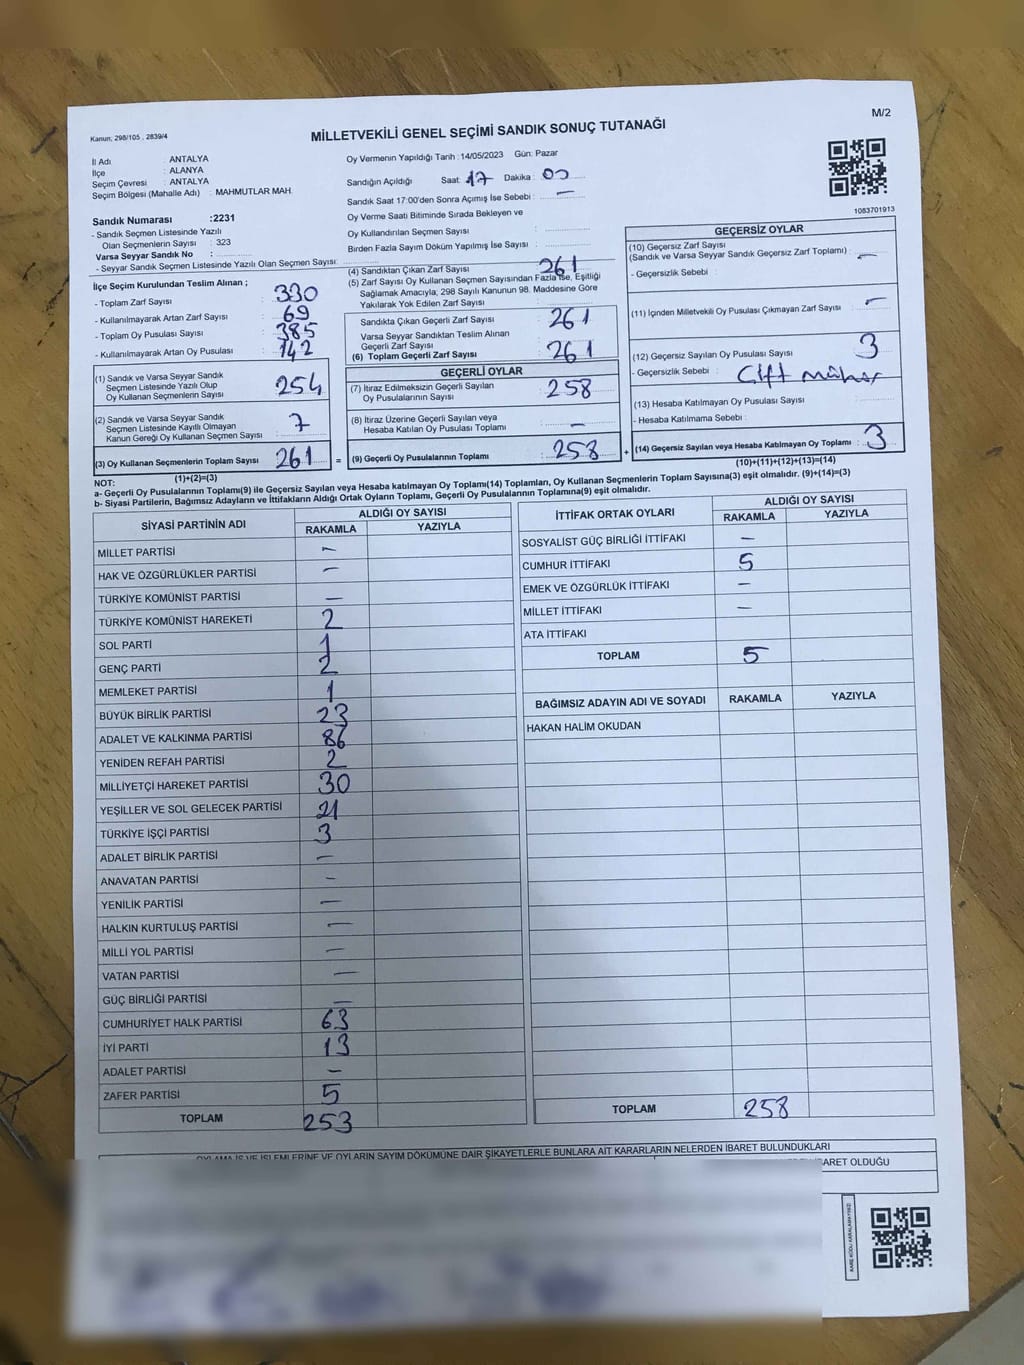 M/2
Kanun; 298/105 , 2839/4
MİLLETVEKİLİ GENEL SEÇİMİ SANDIK SONUÇ TUTANAĞI
İl Adı : ANTALYA
İlçe : ALANYA
Seçim Çevresi : ANTALYA
Seçim Bölgesi (Mahalle Adı) : MAHMUTLAR MAH.
Sandık Numarası :2231
- Sandık Seçmen Listesinde Yazılı
Olan Seçmenlerin Sayısı : 323
Varsa Seyyar Sandık No :
- Seyyar Sandık Seçmen Listesinde Yazılı Olan Seçmen Sayısı:
Oy Vermenin Yapıldığı Tarih :14/05/2023 Gün: Pazar
Sandığın Açıldığı Saat: 17 Dakika : 00
Sandık Saat 17:00'den Sonra Açımış İse Sebebi : —
Oy Verme Saati Bitiminde Sırada Bekleyen ve
Oy Kullandırılan Seçmen Sayısı :
Birden Fazla Sayım Döküm Yapılmış İse Sayısı :
1083701913
İlçe Seçim Kurulundan Teslim Alınan ;
- Toplam Zarf Sayısı : 330
- Kullanılmayarak Artan Zarf Sayısı : 69
- Toplam Oy Pusulası Sayısı : 385
- Kullanılmayarak Artan Oy Pusulası : 142
(1) Sandık ve Varsa Seyyar Sandık
Seçmen Listesinde Yazılı Olup
Oy Kullanan Seçmenlerin Sayısı : 254
(2) Sandık ve Varsa Seyyar Sandık
Seçmen Listesinde Kayılı Olmayan
Kanun Gereği Oy Kullanan Seçmen Sayısı : 7
(3) Oy Kullanan Seçmenlerin Toplam Sayısı : 261
(1)+(2)=(3)
(4) Sandıktan Çıkan Zarf Sayısı : 261
(5) Zarf Sayısı Oy Kullanan Seçmen Sayısından Fazla İse, Eşitliği
Sağlamak Amacıyla; 298 Sayılı Kanunun 98. Maddesine Göre
Yakılarak Yok Edilen Zarf Sayısı :
Sandıkta Çıkan Geçerli Zarf Sayısı : 261
Varsa Seyyar Sandıktan Teslim Alınan
Geçerli Zarf Sayısı :
(6) Toplam Geçerli Zarf Sayısı : 261
GEÇERLİ OYLAR
(7) İtiraz Edilmeksizin Geçerli Sayılan
Oy Pusulalarının Sayısı : 258
(8) İtiraz Üzerine Geçerli Sayılan veya
Hesaba Katılan Oy Pusulası Toplamı : —
= (9) Geçerli Oy Pusulalarının Toplamı : 258
GEÇERSİZ OYLAR
(10) Geçersiz Zarf Sayısı
(Sandık ve Varsa Seyyar Sandık Geçersiz Zarf Toplamı) : —
- Geçersizlik Sebebi :
(11) İçinden Milletvekili Oy Pusulası Çıkmayan Zarf Sayısı : —
(12) Geçersiz Sayılan Oy Pusulası Sayısı : 3
- Geçersizlik Sebebi : Çift mühür
(13) Hesaba Katılmayan Oy Pusulası Sayısı :
- Hesaba Katılmama Sebebi :
+ (14) Geçersiz Sayılan veya Hesaba Katılmayan Oy Toplamı : 3
(10)+(11)+(12)+(13)=(14)
NOT:
a- Geçerli Oy Pusulalarının Toplamı(9) ile Geçersiz Sayılan veya Hesaba katılmayan Oy Toplamı(14) Toplamları, Oy Kullanan Seçmenlerin Toplam Sayısına(3) eşit olmalıdır. (9)+(14)=(3)
b- Siyasi Partilerin, Bağımsız Adayların ve İttifakların Aldığı Ortak Oyların Toplamı, Geçerli Oy Pusulalarının Toplamına(9) eşit olmalıdır.
SİYASİ PARTİNİN ADI ALDIĞI OY SAYISI
RAKAMLA YAZIYLA
MİLLET PARTİSİ —
HAK VE ÖZGÜRLÜKLER PARTİSİ —
TÜRKİYE KOMÜNİST PARTİSİ —
TÜRKİYE KOMÜNİST HAREKETİ 2
SOL PARTİ 1
GENÇ PARTİ 2
MEMLEKET PARTİSİ 1
BÜYÜK BİRLİK PARTİSİ 23
ADALET VE KALKINMA PARTİSİ 86
YENİDEN REFAH PARTİSİ 2
MİLLİYETÇİ HAREKET PARTİSİ 30
YEŞİLLER VE SOL GELECEK PARTİSİ 21
TÜRKİYE İŞÇİ PARTİSİ 3
ADALET BİRLİK PARTİSİ —
ANAVATAN PARTİSİ —
YENİLİK PARTİSİ —
HALKIN KURTULUŞ PARTİSİ —
MİLLİ YOL PARTİSİ —
VATAN PARTİSİ —
GÜÇ BİRLİĞİ PARTİSİ —
CUMHURİYET HALK PARTİSİ 63
İYİ PARTİ 13
ADALET PARTİSİ —
ZAFER PARTİSİ 5
TOPLAM 253
İTTİFAK ORTAK OYLARI ALDIĞI OY SAYISI
RAKAMLA YAZIYLA
SOSYALİST GÜÇ BİRLİĞİ İTTİFAKI —
CUMHUR İTTİFAKI 5
EMEK VE ÖZGÜRLÜK İTTİFAKI —
MİLLET İTTİFAKI —
ATA İTTİFAKI
TOPLAM 5
BAĞIMSIZ ADAYIN ADI VE SOYADI RAKAMLA YAZIYLA
HAKAN HALİM OKUDAN
TOPLAM 258
OYLAMA İŞ VE İŞLEMLERİNE VE OYLARIN SAYIM DÖKÜMÜNE DAİR ŞİKAYETLERLE BUNLARA AİT KARARLARIN NELERDEN İBARET BULUNDUKLARI
İBARET OLDUĞU
KARE KODU KARALAMAYINIZ!